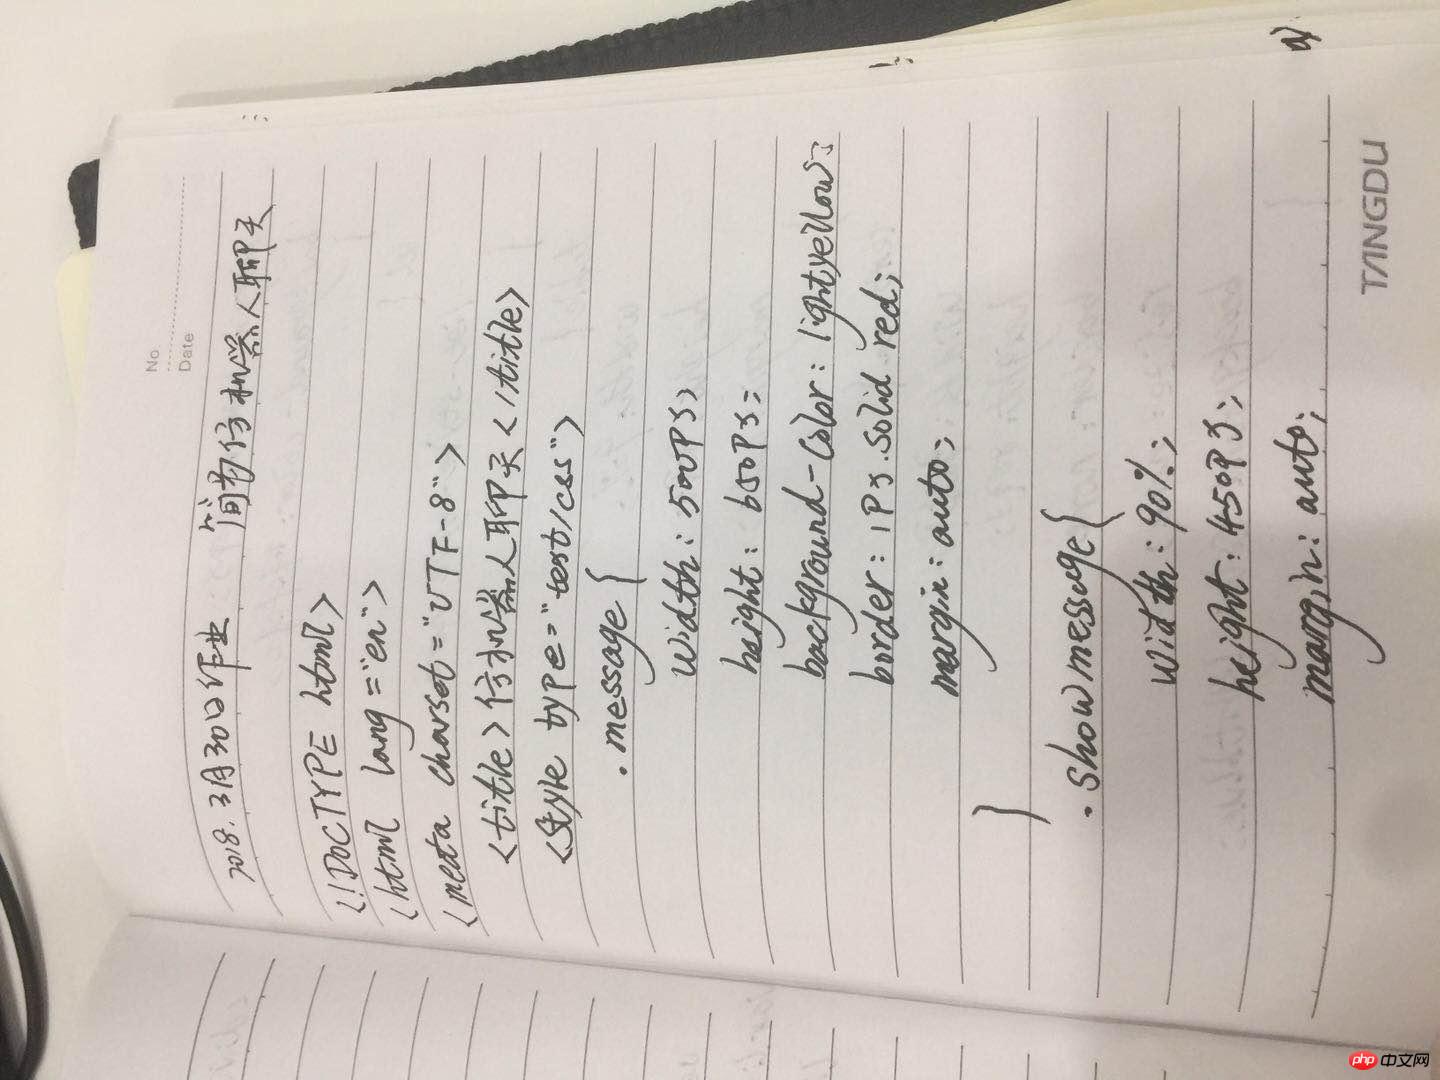 No
Date
2018.3月30日作业 简易仿机器人聊天
<!DOCTYPE html>
<html lang="en">
<meta charset="UTF-8">
<title>仿机器人聊天</title>
<style type="text/css">
.message{
width:500px;
height:650px;
background-color:lightyellow;
border:1px.solid red;
margin:auto;
}
.showmessage{
width:90%;
height:450px;
margin:auto;
TANGDU
php 中文网